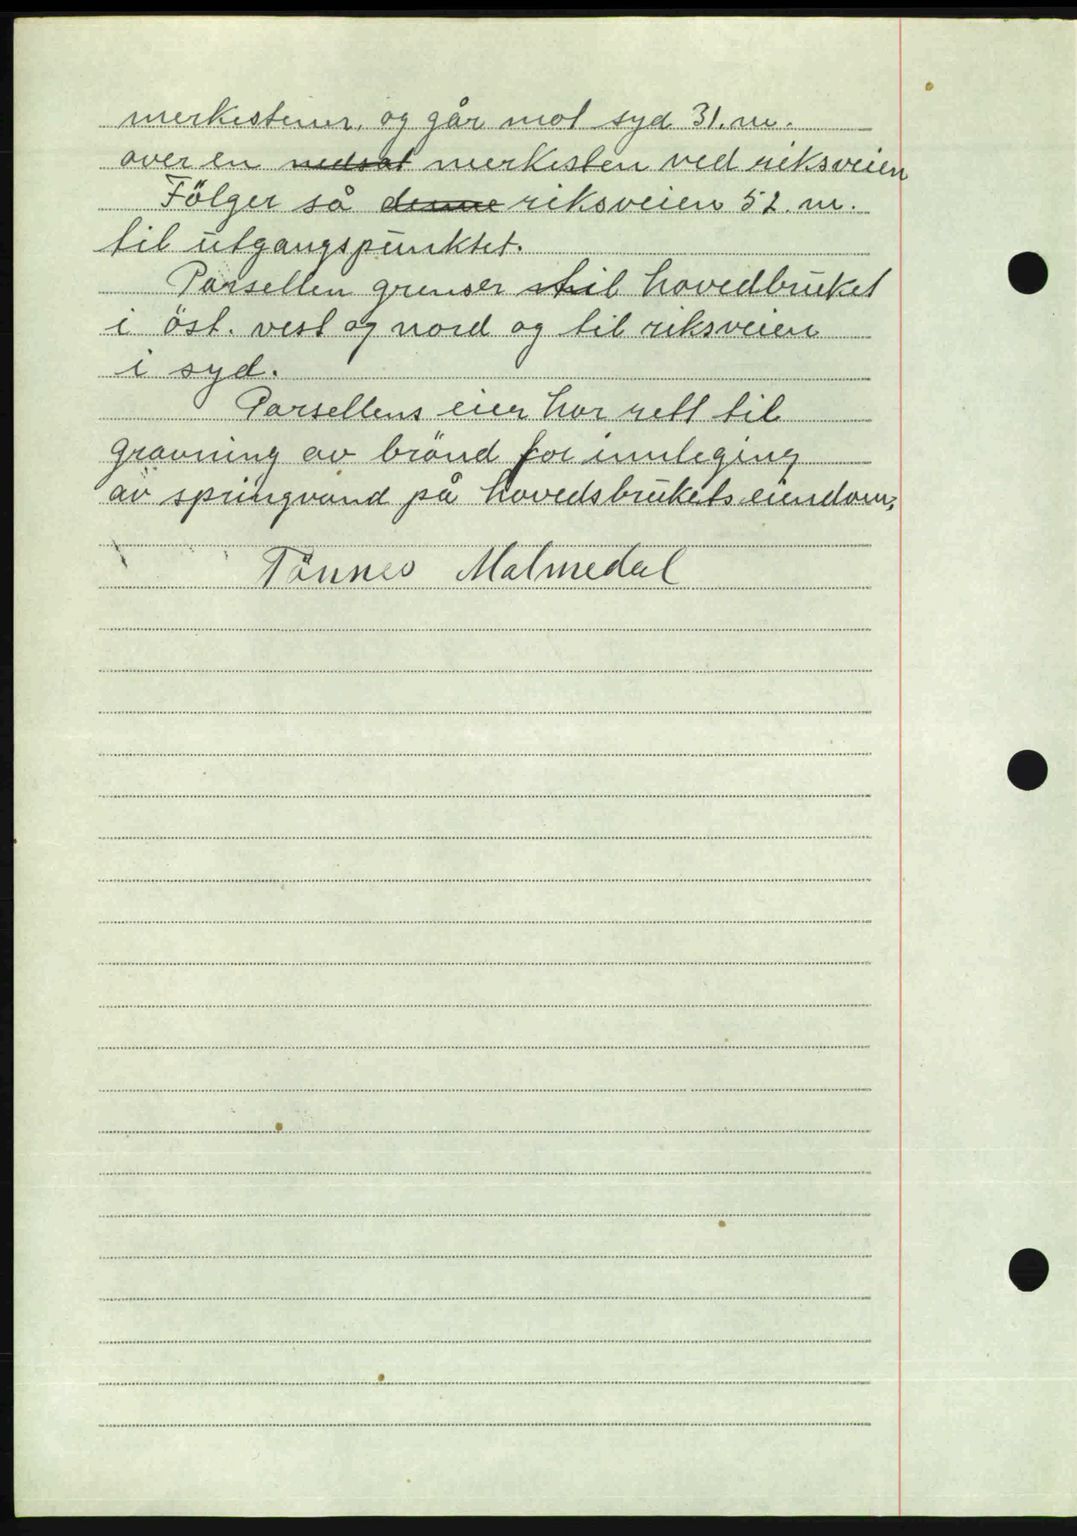 merkestener, og går mot syd 31. m.
over en nedsat merkesten ved riksveien
Fölger så denne riksveien 52. m.
til utgangspunktet.
Parsellen grenser til hovedbruket
i öst. vest og nord og til riksveien
i syd.
Parsellens eier har rett til
gravning av brönd for innleging
av springvand på hovedsbrukets eiendom,
Tönnes Malmedal